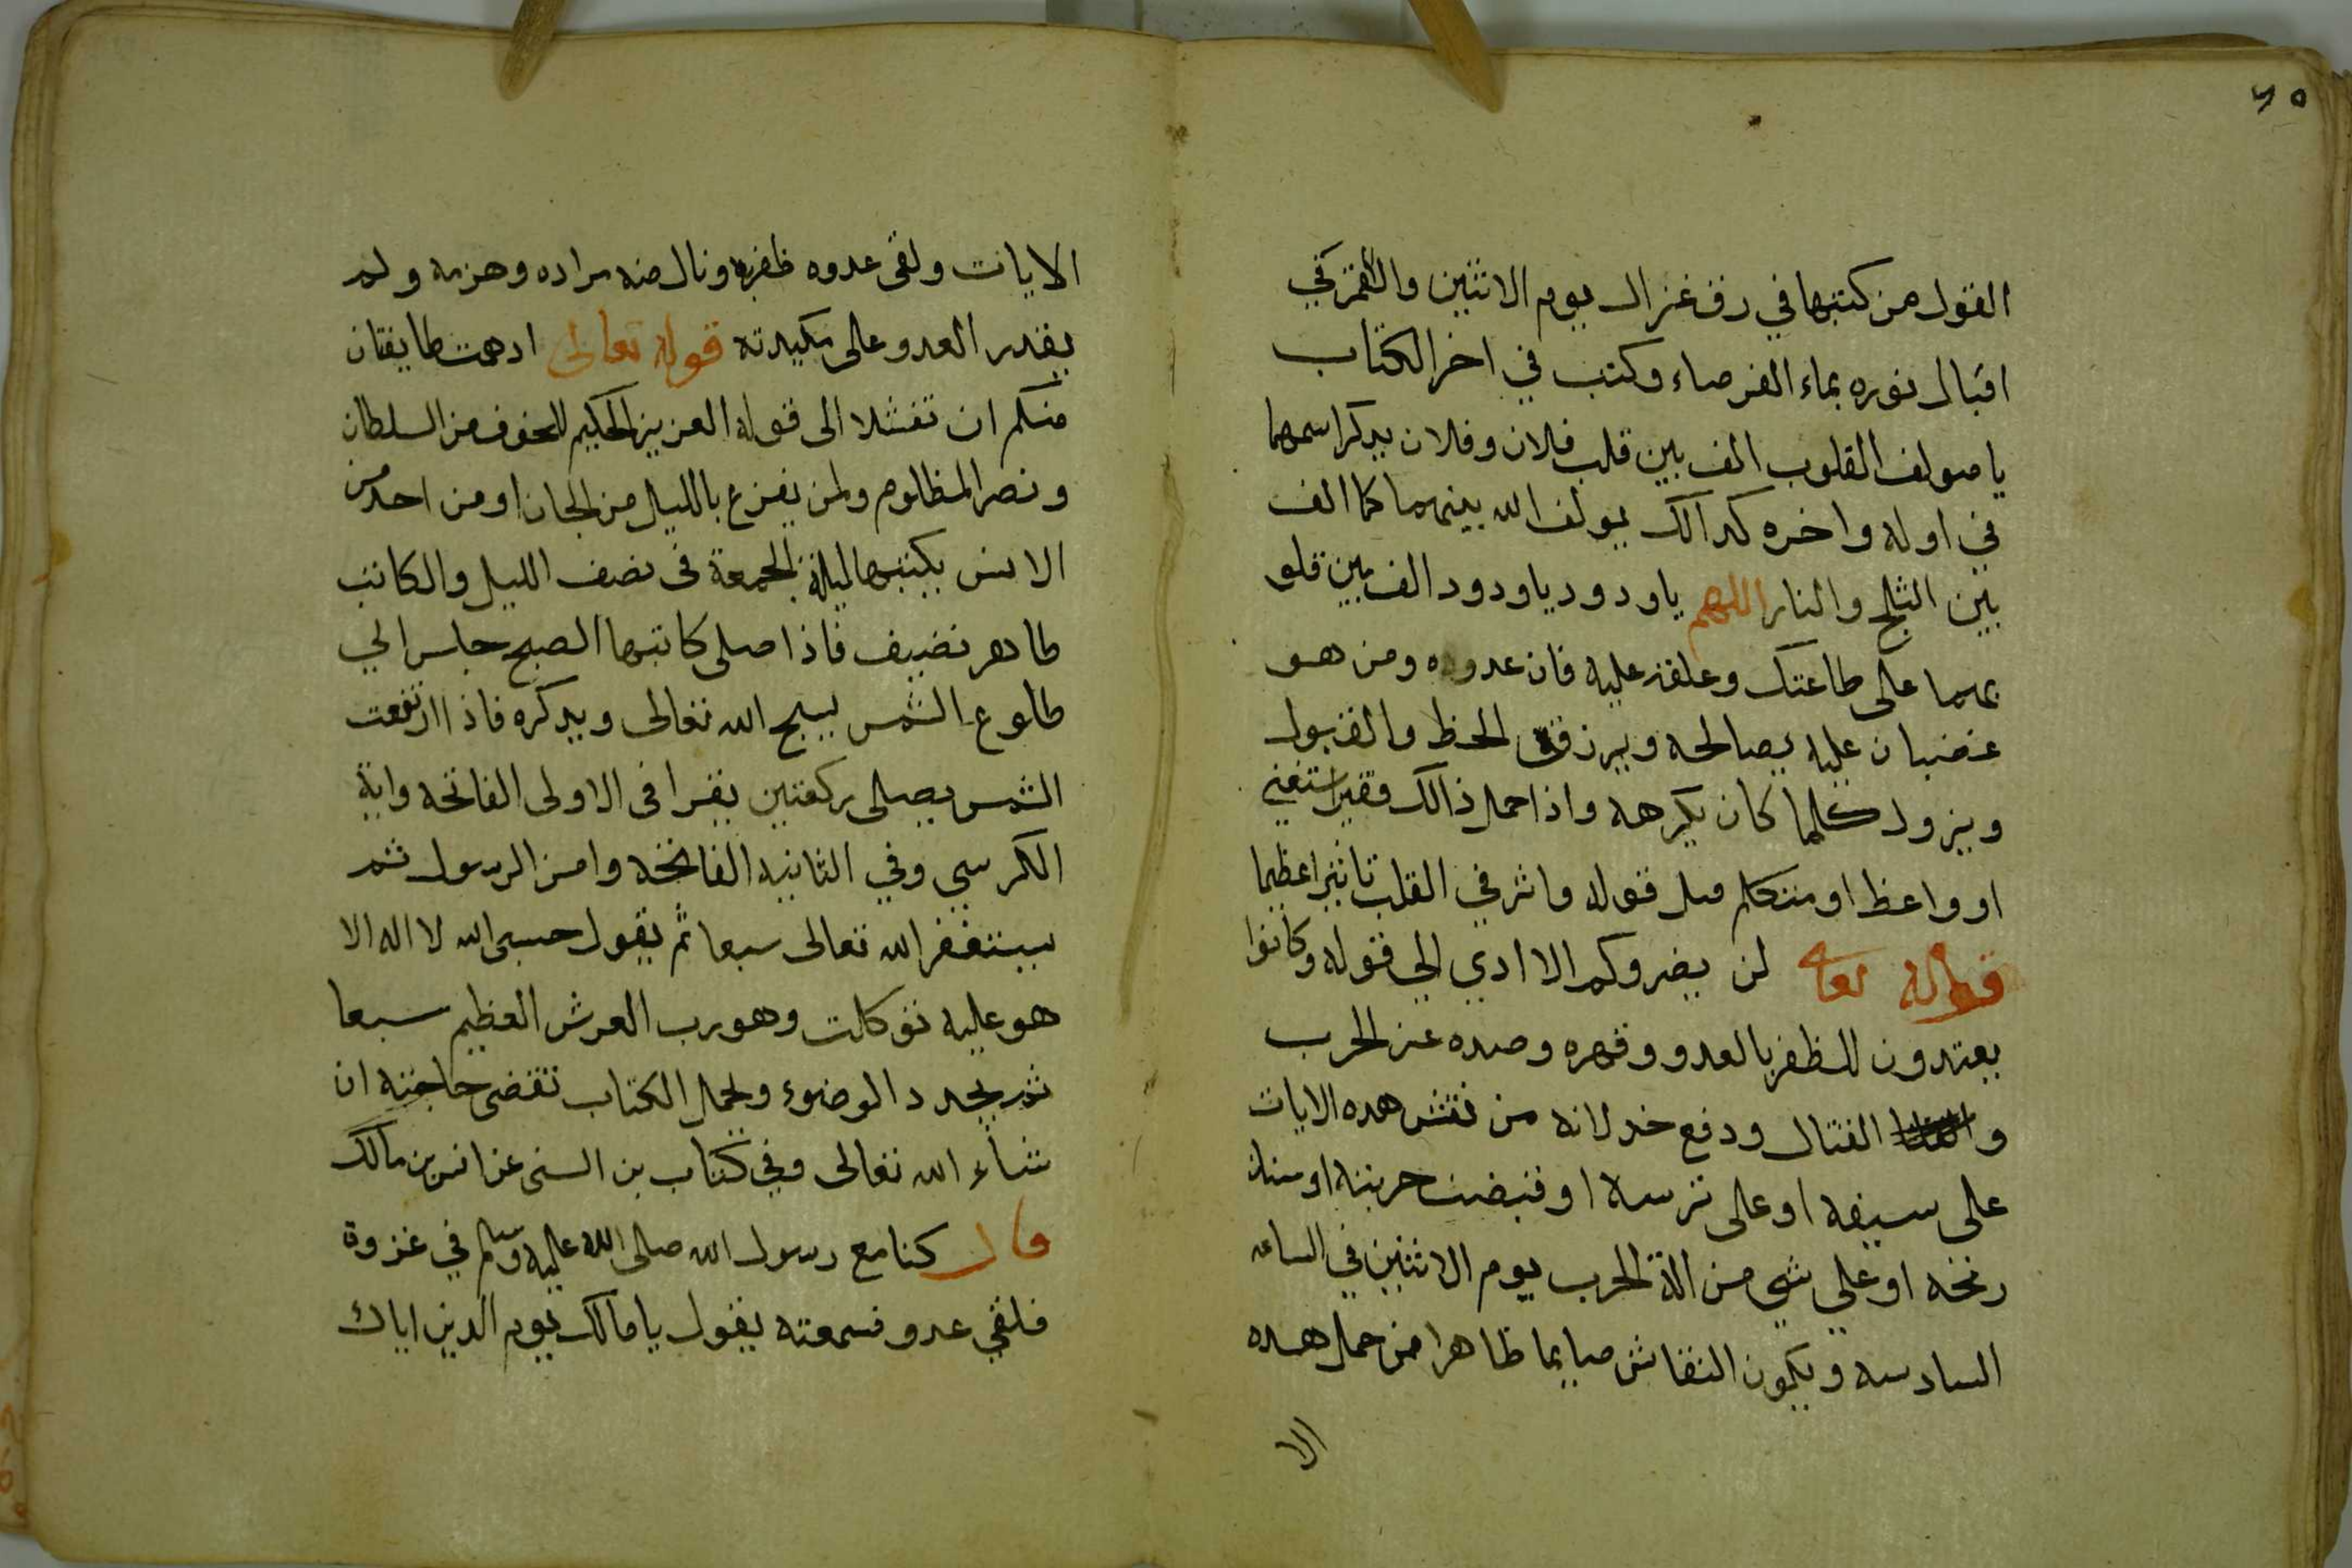 ٢٥
القول من كتبها في رق غزال يوم الاثنين والقمر في
اقبال نوره بماء الفرصاء وكتب في اخر الكتاب
يا مولف القلوب الف بين قلب فلان وفلان يدكر اسمهما
في اوله واخره كدالك يولف الله بينهما كما الف
بين الثلج والنار اللهم يا ودود يا ودود الف بين قلو
بهما على طاعتك وعلقه عليه فان عدوه ومن هو
غضبان عليه يصالحه ويرزق الحظ والقبول
ويزول كلما كان يكرهه واذا حمل ذالك فقير استغني
او واعظ او متكلم قبل قوله واثر في القلب تاثيرا عظيما
قوله تعالى لن يضروكم الا ادي الي قوله وكانوا
يعتدون للظفر بالعدو وقهره وصده عن الحرب
و القتال ودفع خدلانه من نقش هده الايات
على سيفه او على ترسه او قبضت حربته او سنان
رمحه او علي شي من الة الحرب يوم الاثنين في الساعه
السادسه ويكون النقاش صايما طاهرا من حمل هده
الا
الايات ولقى عدوه ظفر به ونال منه مراده وهزمه ولم
يقدر العدو على مكيدته قوله تعالى ادهمت طايفتان
منكم ان تفشلا الى قوله العزيز الحكيم للخوف من السلطان
ونصر المظلوم ولمن يفزع بالليل من الجان او من احد من
الانس يكتبها ليلة الجمعة فى نصف الليل والكاتب
طاهر نضيف فاذا صلى كاتبها الصبح جلس الي
طلوع الشمس يسبح الله تعالى ويدكره فاذا ارتفعت
الشمس يصلى ركعتين يقرا فى الاولى الفاتحه واية
الكرسي وفي الثانيه الفاتحه وامن الرسول ثم
يستغفر الله تعالى سبعا ثم يقول حسبى الله لا اله الا
هو عليه توكلت وهو رب العرش العظيم سبعا
ثم يجدد الوضوء ويحمل الكتاب تقضى حاجته ان
شاء الله تعالى وفي كتاب بن السنى عن انس بن مالك
قال كنا مع رسول الله صلى الله عليه وسلم في غزوة
فلقي عدو فسمعته يقول يا مالك يوم الدين اياك